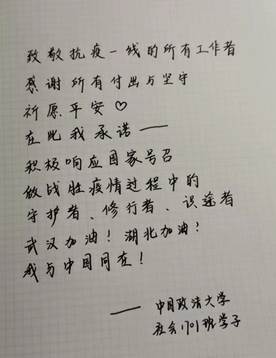 致敬抗疫一线的所有工作者
感谢所有付出与坚守
祈愿平安♡
在此我承诺——
积极响应国家号召
做战胜疫情过程中的
守护者、修行者、识途者
武汉加油！湖北加油！
我与中国同在！
——中国政法大学
社会1701班学子